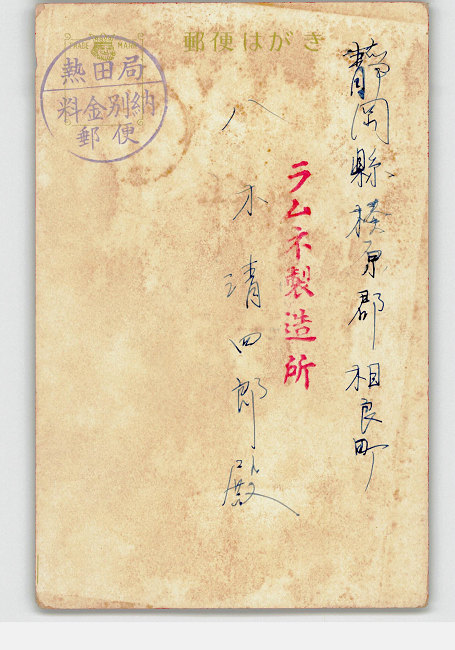 TRADE MARK
郵便はがき
熱田局
料金別納
郵便
靜岡縣榛原郡相良町
ラムネ製造所
八木清四郎殿